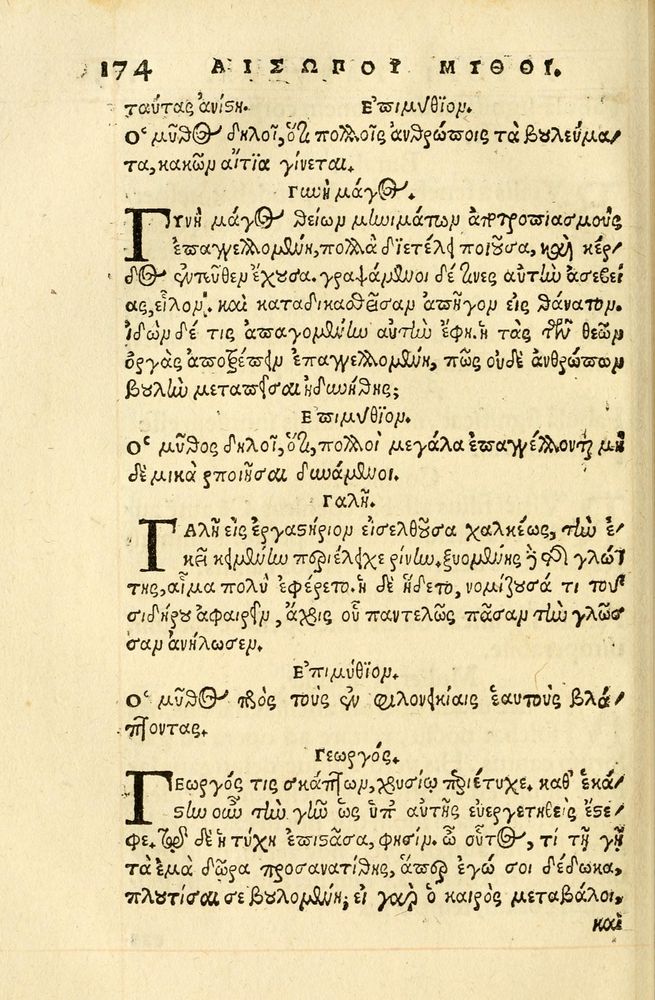 174 ΑΙΣΩΠΟΥ ΜΥΘΟΙ.
ταύτας ἀνίση. Ἐπιμύθιον.
Ὁ μῦθος δηλοῖ, ὅτι πολλοῖς ἀνθρώποις τὰ βουλεύμα-
τα, κακῶν αἴτια γίνεται.
Γυνὴ μάγος.
ΓΥΝὴ μάγος θείων μηνιμάτων ἀποτροπιασμοὺς
ἐπαγγελλομένη, πολλὰ διετέλει ποιοῦσα, καὶ κέρ-
δος ἐντεῦθεν ἔχουσα. γραψάμενοι δέ τινες αὐτὴν ἀσεβεί
ας, εἷλον. καὶ καταδικασθεῖσαν ἀπῆγον εἰς θάνατον.
ἰδὼν δέ τις ἀπαγομένην αὐτὴν ἔφη. ἡ τὰς τῶν θεῶν
ὀργὰς ἀποτρέπειν ἐπαγγελλομένη, πῶς οὐδὲ ἀνθρώπων
βουλὴν μεταπεῖσαι ἠδυνήθης;
Ἐπιμύθιον.
Ὁ μῦθος δηλοῖ, ὅτι, πολλοὶ μεγάλα ἐπαγγέλλονται μη
δὲ μικρὰ ποιῆσαι δυνάμενοι.
Γαλῆ.
ΓΑλῆ εἰς ἐργαστήριον εἰσελθοῦσα χαλκέως, τὴν ἐ-
κεῖ κειμένην περιέλειχε ρίνην. ξυομένης δὲ τῆς γλώτ
της, αἷμα πολὺ ἐφέρετο. ἡ δὲ ἥδετο, νομίζουσά τι τοῦ
σιδήρου ἀφαιρεῖν, ἄχρις οὗ παντελῶς πᾶσαν τὴν γλῶσ
σαν ἀνήλωσεν.
Ἐπιμύθιον.
Ὁ μῦθος πρὸς τοὺς ἐν φιλονεικίαις ἑαυτοὺς βλά-
πτοντας.
Γεωργός.
ΓΕωργός τις σκάπτων, χρυσίῳ περιέτυχε. καθ' ἑκά-
στην οὖν τὴν γῆν ὡς ὑπ' αὐτῆς εὐεργετηθεὶς ἔστε-
φε. τῷ δὲ ἡ τύχη ἐπιστᾶσα, φησίν. ὦ οὗτος, τί τῇ γῇ
τὰ ἐμὰ δῶρα προσανατίθης, ἅπερ ἐγώ σοι δέδωκα,
πλουτίσαι σε βουλομένη; εἰ γὰρ ὁ καιρὸς μεταβάλοι,
καὶ